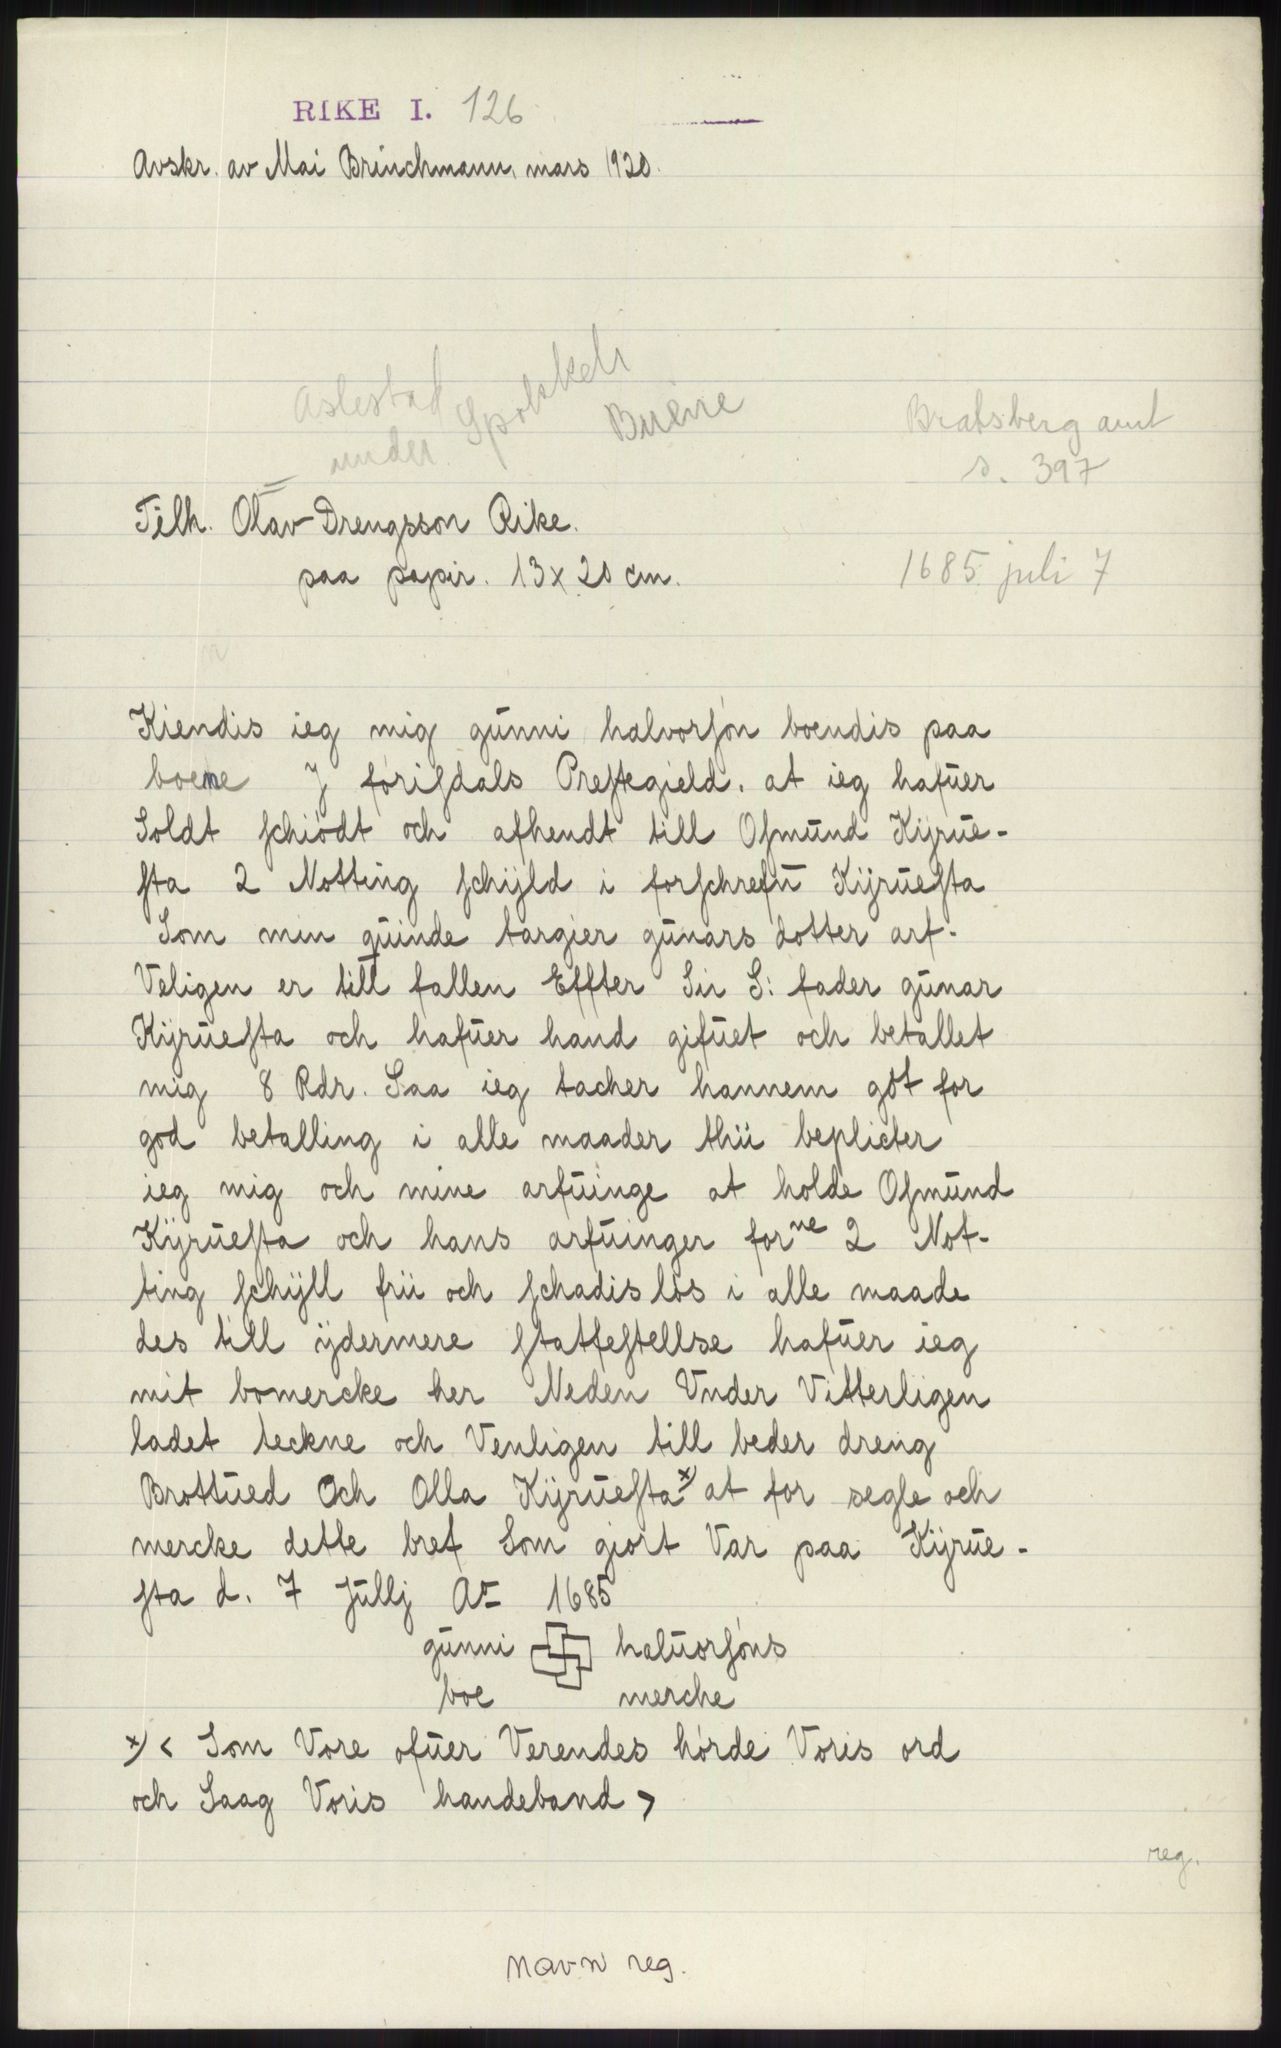 RIKE I. 126
Avskr. av Mai Brinchmann, mars 1920.
Aslestad Spolskelr
under Buene
Bratsberg amt
s. 397
Tilh. Olav Drengsson Rike.
paa papir. 13 x 20 cm.
1685 juli 7
Kiendis ieg mig gŭnni halvorſón boendis paa
boene J fóriſdals Preſtegield. at ieg hafŭer
Soldt ſchiódt och afhendt till Oſmŭnd Kÿrŭe-
ſta 2 Notting ſchÿld i forſchrefŭ Kÿrŭeſta
Som min qŭinde targier gŭnars dotter arf-
Veligen er till fallen Effter Sin S: fader gŭnar
Kÿrŭeſta och hafŭer hand gifŭet och betallet
mig 8 Rdr. Saa ieg tacher hannem gót for
god betalling i alle maader thii beplicter
ieg mig och mine arfŭinge at holde Oſmŭnd
Kÿrŭeſta och hans arfŭinger forne 2 Not-
ting ſchÿll frii och ſchadis lós i alle maade
des till ÿdermere ſtatfeſtellse hafŭer ieg
mit bomercke her Neden Vnder Vitterligen
ladet teckne och Venligen till beder dreng
Brottŭed Och Olla Kÿrŭeſta x) at for segle och
mercke dette bref Som giort Var paa Kÿrŭe-
ſta d. 7 Jŭllj Ao 1685
gŭnni halŭorſóns
boe merche
x) < Som Vore ofŭer Verendes hórde Voris ord
och Saag Voris handeband >
reg.
navn reg.